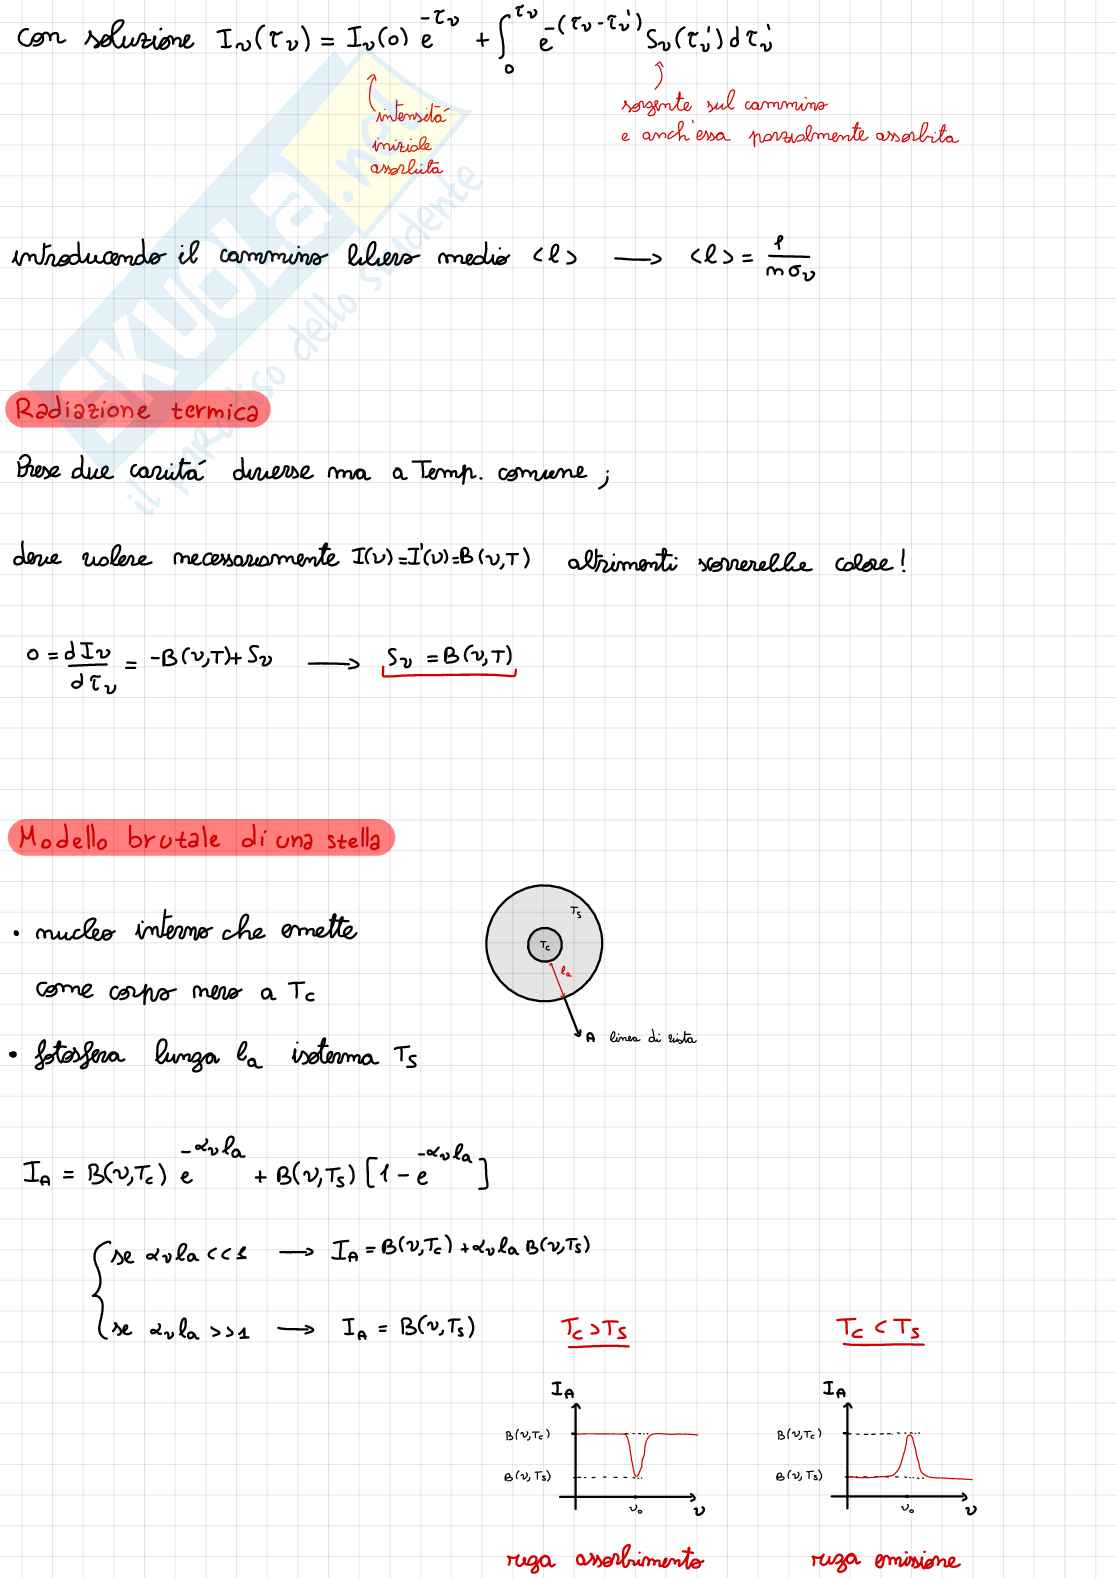 con soluzione I_ν(τ_ν) = I_ν(0) e^{-τ_ν} + ∫_0^{τ_ν} e^{-(τ_ν-τ_ν')} S_ν(τ_ν') dτ_ν'
intensitá
iniziale
assorbita
sorgente sul cammino
e anch'essa parzialmente assorbita
SKUOLA.net
il paradiso dello studente
introducendo il cammino libero medio <l> → <l> = 1/(nσ_ν)
Radiazione termica
Prese due cavitá diverse ma a Temp. comune ;
deve valere necessariamente I(ν)=I'(ν)=B(ν,T) altrimenti scorrerebbe calore!
0 = dI_ν/dτ_ν = -B(ν,T)+S_ν → S_ν = B(ν,T)
Modello brutale di una stella
• nucleo interno che emette
come corpo nero a T_c
• fotosfera lunga l_a isoterma T_s
T_s
T_c
l_a
A linea di vista
I_A = B(ν,T_c) e^{-α_ν l_a} + B(ν,T_s) [1 - e^{-α_ν l_a}]
{ se α_ν l_a <<1 → I_A = B(ν,T_c) + α_ν l_a B(ν,T_s)
se α_ν l_a >>1 → I_A = B(ν,T_s)
T_c > T_s
I_A
B(ν,T_c)
B(ν,T_s)
ν_0
ν
riga assorbimento
T_c < T_s
I_A
B(ν,T_c)
B(ν,T_s)
ν_0
ν
riga emissione